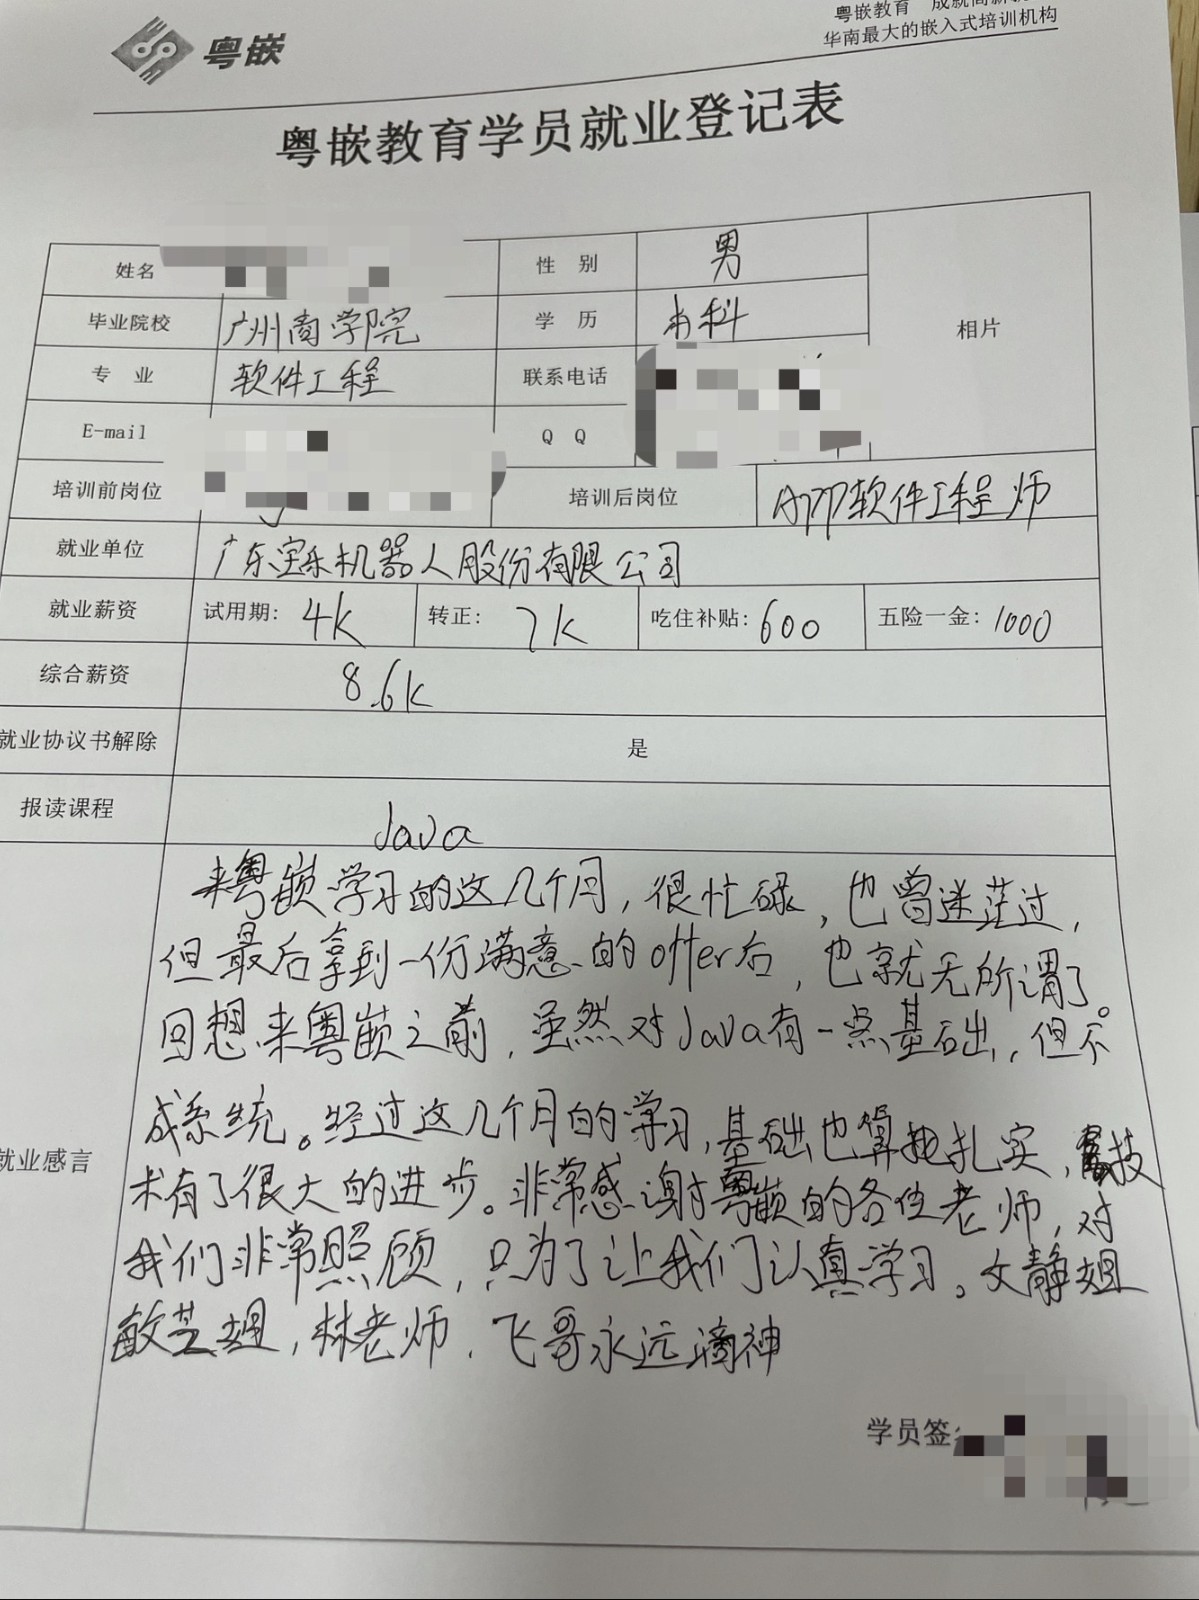 粤嵌
粤嵌教育
华南最大的嵌入式培训机构
粤嵌教育学员就业登记表
姓名 性 别 男 相片
毕业院校 广州商学院 学 历 本科
专 业 软件工程 联系电话
E-mail Q Q
培训前岗位 培训后岗位 APP软件工程师
就业单位 广东宝乐机器人股份有限公司
就业薪资 试用期: 4K 转正: 7K 吃住补贴: 600 五险一金: 1000
综合薪资 8.6K
就业协议书解除 是
报读课程 Java
来粤嵌学习的这几个月，很忙碌，也曾迷茫过，
但最后拿到一份满意的offer后，也就无所谓了。
回想来粤嵌之前，虽然对Java有一点基础，但不
成系统。经过这几个月的学习，基础也算扎实，技
就业感言
术有了很大的进步。非常感谢粤嵌的各位老师，对
我们非常照顾，只为了让我们认真学习。文静姐
敏芝姐，林老师，飞哥永远滴神
学员签